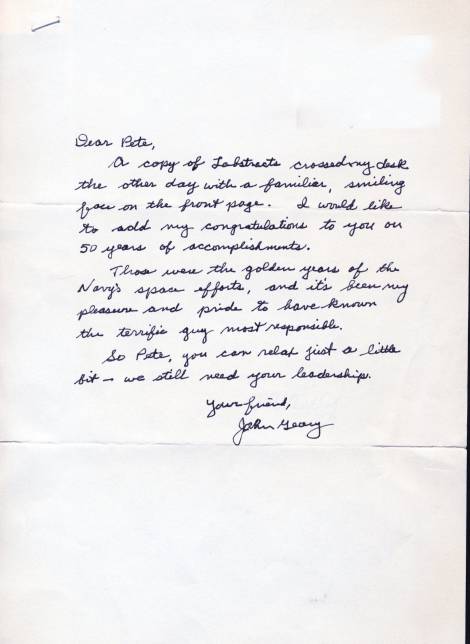 Dear Pete,
A copy of Labstracts crossed my desk
the other day with a familiar, smiling
face on the front page. I would like
to add my congratulations to you on
50 years of accomplishments.
Those were the golden years of the
Navy's space efforts, and it's been my
pleasure and pride to have known
the terrific guy most responsible.
So Pete, you can relax just a little
bit - we still need your leadership.
Your friend,
John Geary